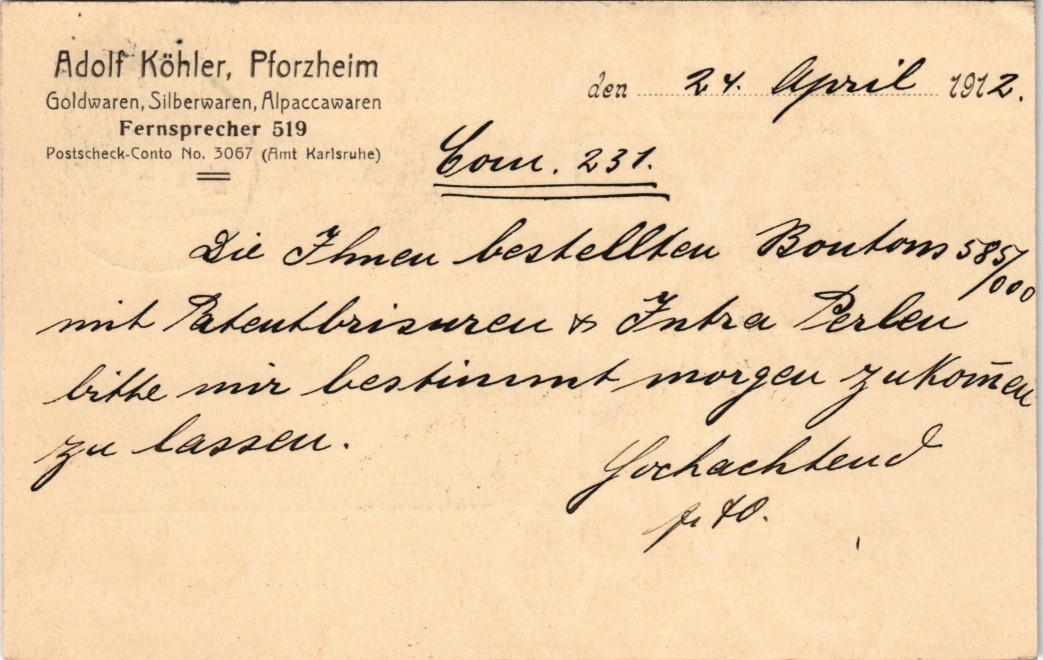 Adolf Köhler, Pforzheim
Goldwaren, Silberwaren, Alpaccawaren
Fernsprecher 519
Postscheck-Conto No. 3067 (Amt Karlsruhe)
den 24. April 1912.
Com. 231.
Die Ihnen bestellten Boutons 585/000
mit Patentbrisuren & Intra Perlen
bitte mir bestimmt morgen zukom̄en
zu lassen.
Hochachtend